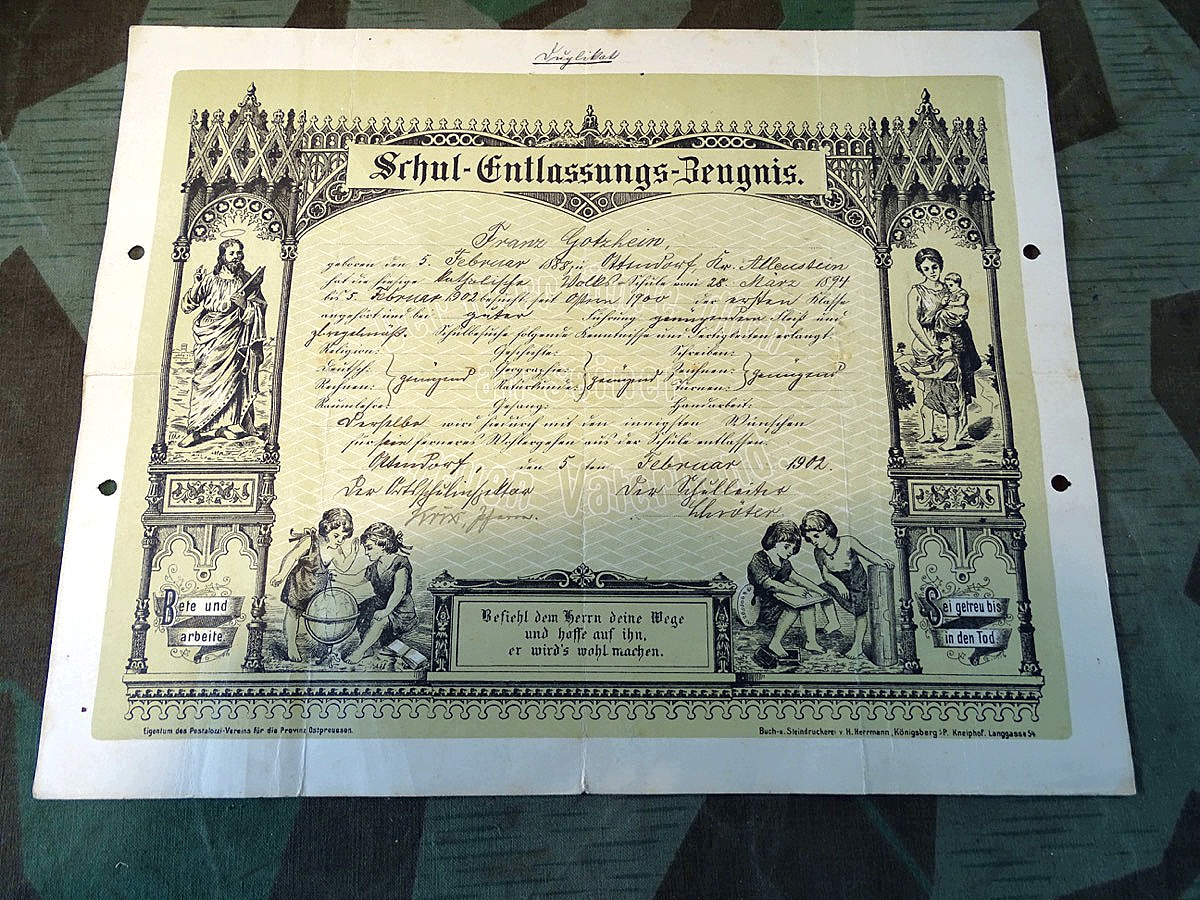 Duplikat
Schul-Entlassungs-Zeugnis.
Franz Gotzhein,
geboren den 5. Februar 1888 zu Ottendorf, Kr. Allenstein
hat die hiesige katholische Volks-Schule vom 28. März 1894
bis 5. Februar 1902 besucht, seit Ostern 1900 der ersten Klasse
angehört und bei guter Führung genügenden Fleiß und
regelmäß. Schulbesuche folgende Kenntnisse und Fertigkeiten erlangt.
Religion: Geschichte: Schreiben:
Deutsch: genügend Geographie: genügend Zeichnen: genügend
Rechnen: Naturkunde: Turnen:
Raumlehre: Gesang: Handarbeit:
Derselbe wird hierdurch mit den innigsten Wünschen
für sein ferneres Wohlergehen aus der Schule entlassen.
Ottendorf, den 5 ten Februar 1902.
Der Ortsschulinspektor Der Schulleiter
Schröter
Bete und
arbeite
Befiehl dem Herrn deine Wege
und hoffe auf ihn,
er wird's wohl machen.
Sei getreu bis
in den Tod
Eigentum des Pestalozzi-Vereins für die Provinz Ostpreussen.
Buch-u. Steindruckerei v. H. Herrmann, Königsberg i/P. Kneiphof. Langgasse 54